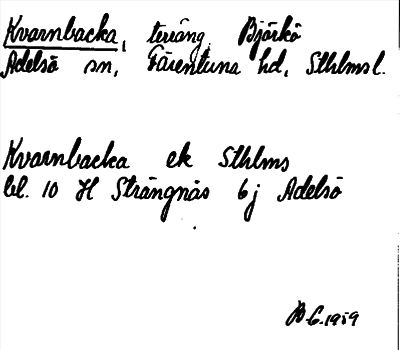 Kvarnbacka, terräng Björkö
Adelsö sn, Färentuna hd, Sthlms l.
Kvarnbacka ek Sthlms
bl. 10 H Strängnäs 6j Adelsö
B.G. 1959